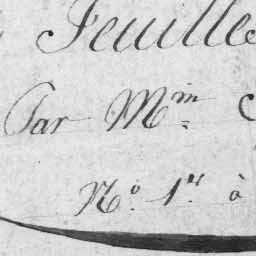 Feuille
Par Mm
No. 1er. à